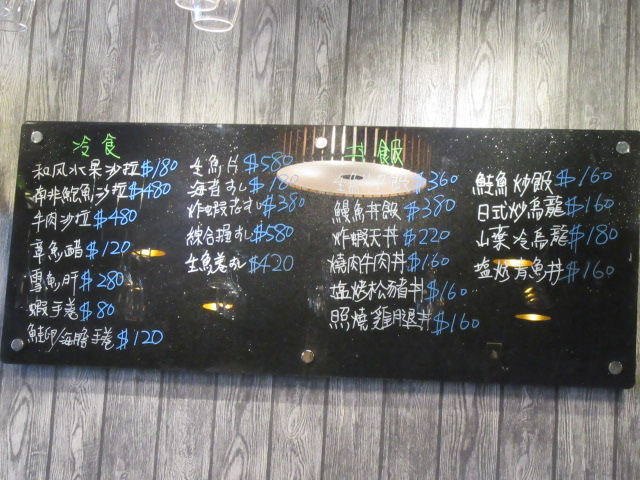 冷食
和风水果沙拉$180
南非鮑魚沙拉$480
牛肉沙拉$480
章魚醋$120
雪魚肝$280
蝦手卷$80
鮭卵/海膽手卷$120
生魚片$580
海苔すし$180
炸蝦老すし$380
綜合握すし$580
生魚卷すし$420
丼飯
$360
鰻魚丼飯$380
炸蝦天丼$220
燒肉牛肉丼$160
塩烤松豬丼$160
照燒雞腿丼$160
鮭魚炒飯$160
日式炒烏龍$160
山葉冷烏龍$180
塩烤青魚丼$160